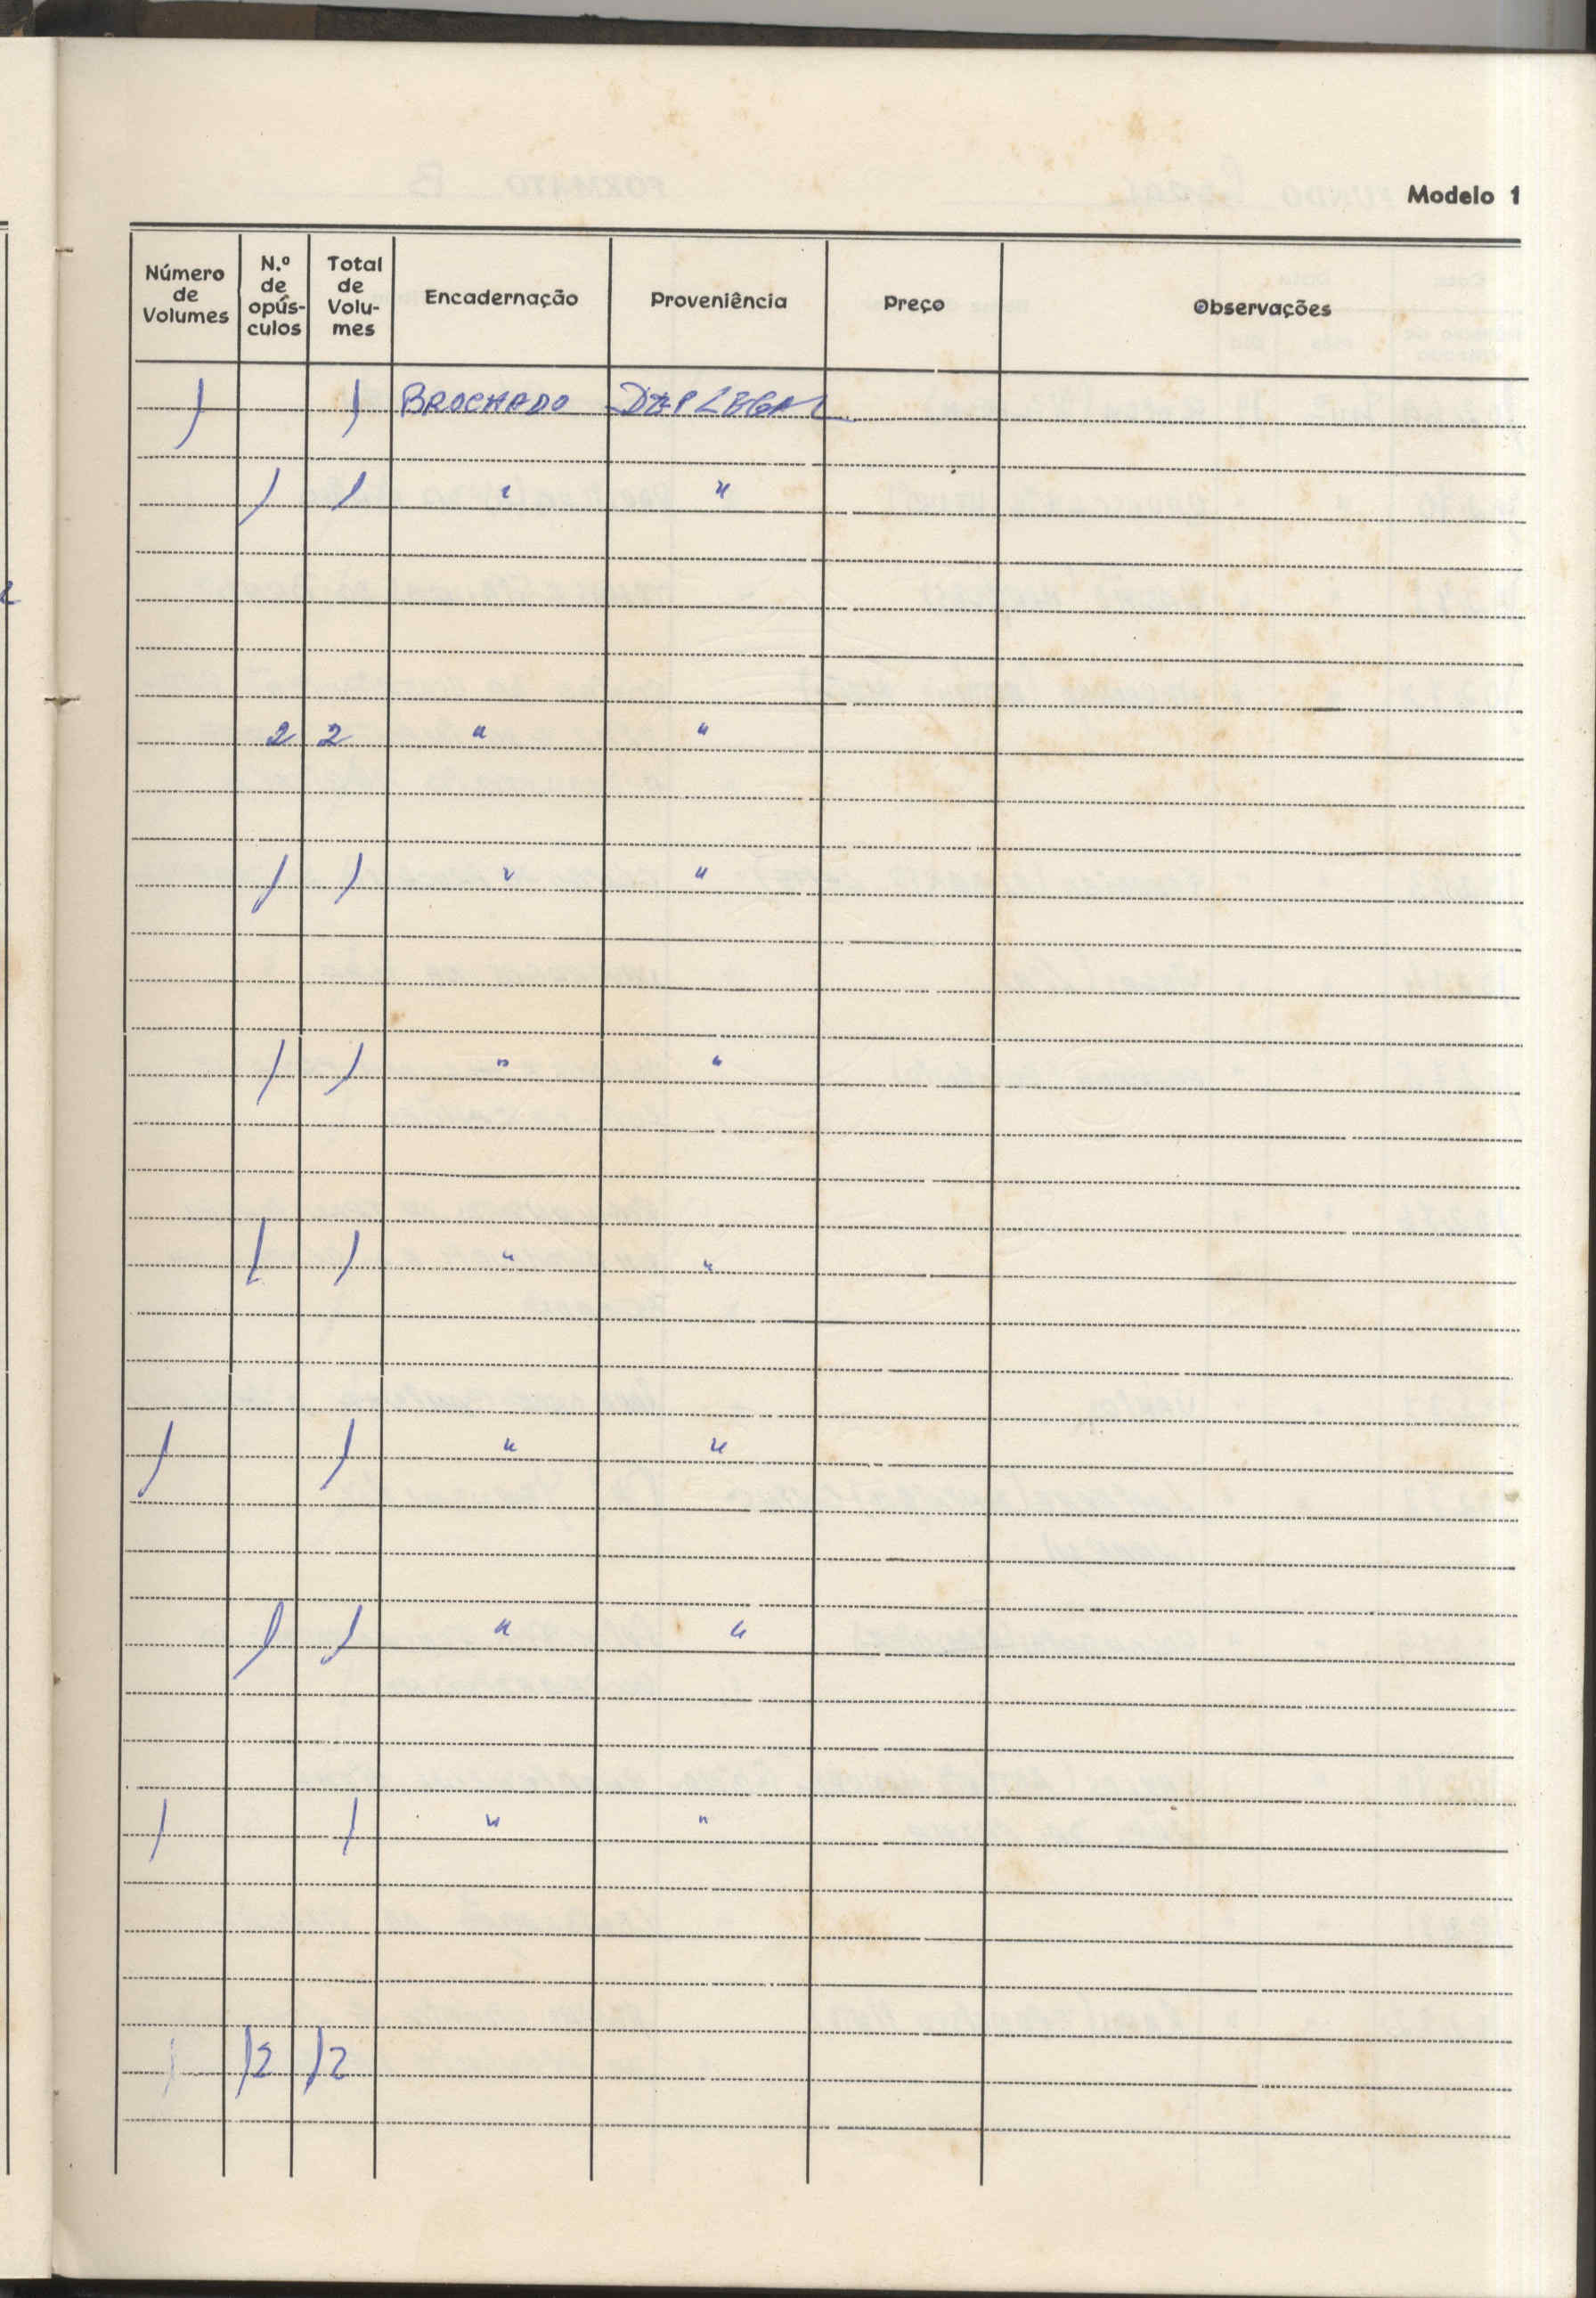 Modelo 1
Número de Volumes | N.º de opús-culos | Total de Volu-mes | Encadernação | Proveniência | Preço | Observações
1 | | 1 | BROCHADO | DEP LEGAL
 | 1 | 1 | " | "
 | 2 | 2 | " | "
 | 1 | 1 | " | "
 | 1 | 1 | " | "
 | 1 | 1 | " | "
1 | | 1 | " | "
 | 1 | 1 | " | "
1 | | 1 | " | "
 | 12 | 12